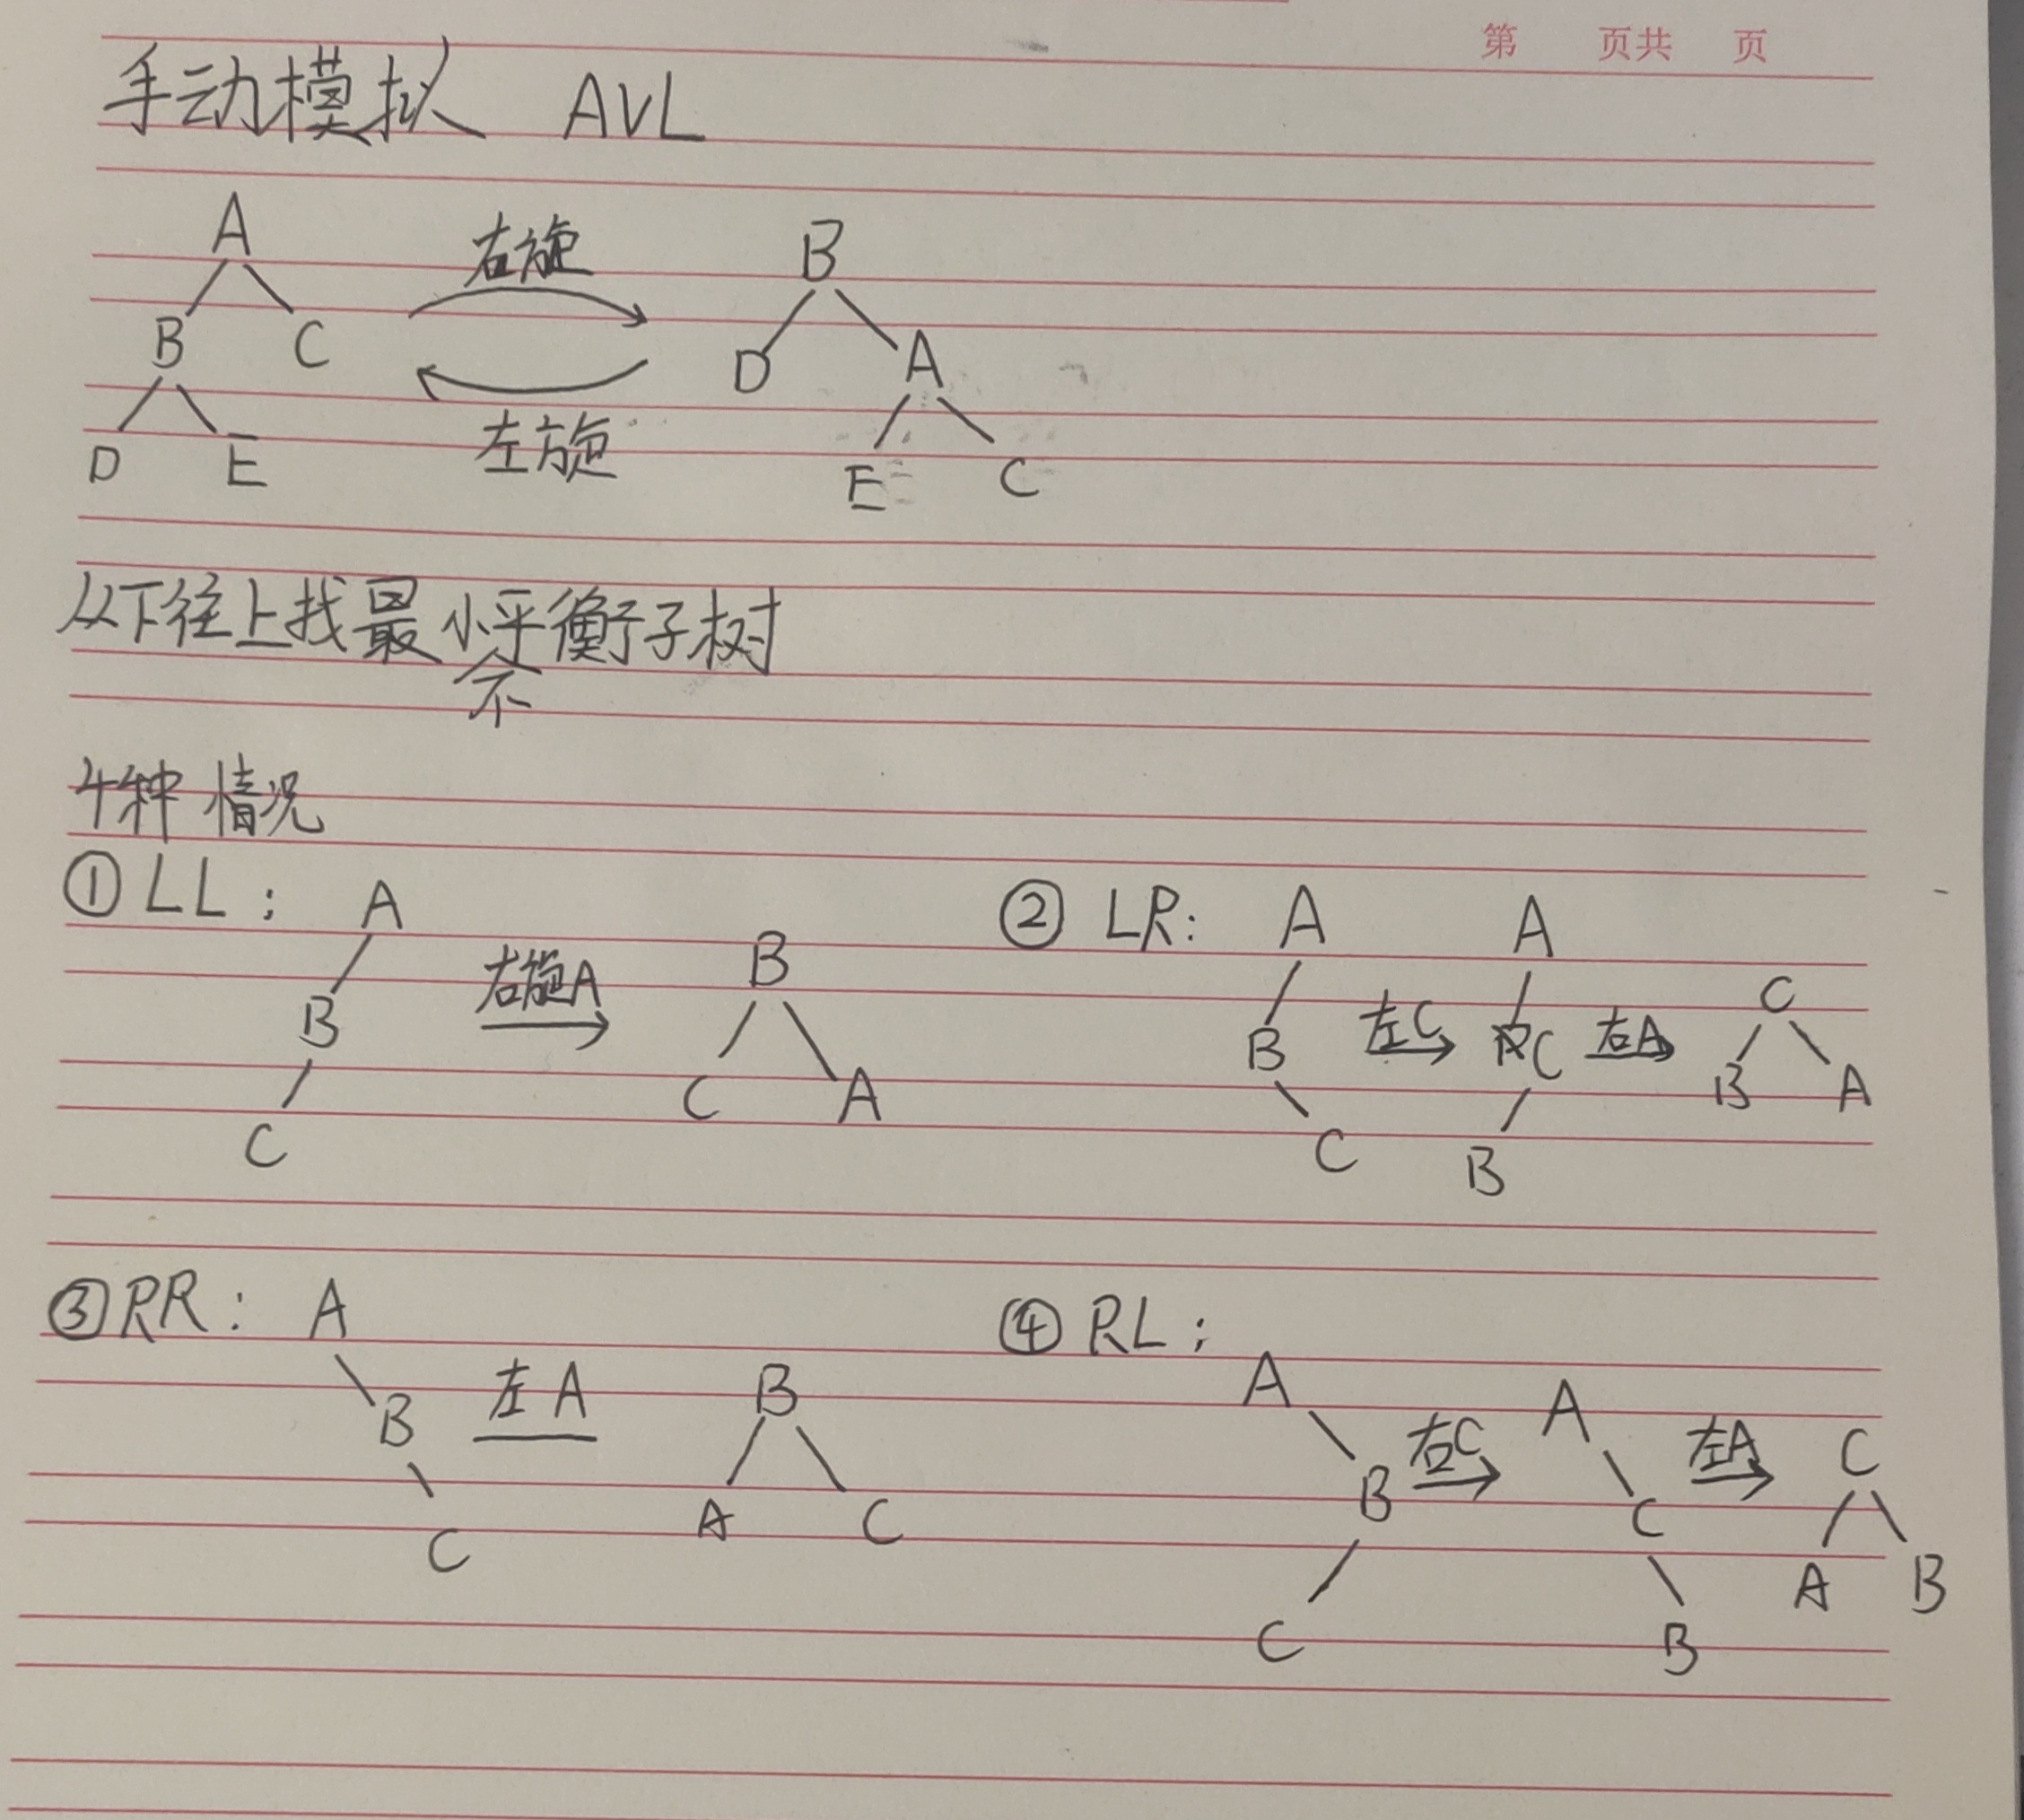 第 页共 页
手动模拟 AVL
A
右旋
B
B C
D A
左旋
D E
E C
从下往上找最小不平衡子树
4种情况
① LL: A
右旋A
B
B
C A
C
② LR: A A
左C
右A
C
B C
B A
C B
③ RR: A
左A
B
B
A C
C
④ RL:
A A
右C
左A
C
B C
A B
C B